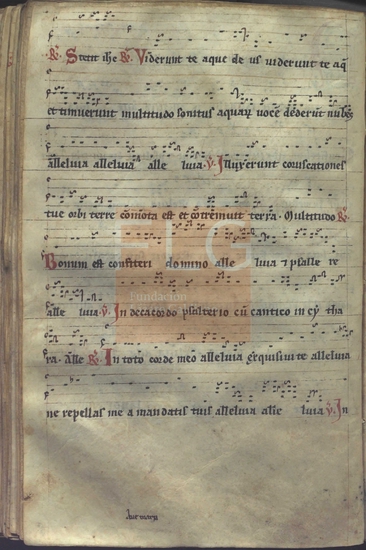 R. Stetit ihc R. Viderunt te aque deus viderunt te aq̄
et timuerunt multitudo sonitus aquaꝝ vocē dederūt nubes
alleluia alleluia alle luia V. Illuxerunt coruscationes
tue orbi terre cōmota est et cōtremuit terra. Multitudo R.
Bonum est confiteri domino alle luia et psalle re
alle luia. V. In decacordo psalterio cū cantico in cytha
ra. Alle R. In toto corde meo alleluia exquisivi te alleluia
ne repellas me a mandatis tuis alleluia alle luia V. In
FLG
Fundación